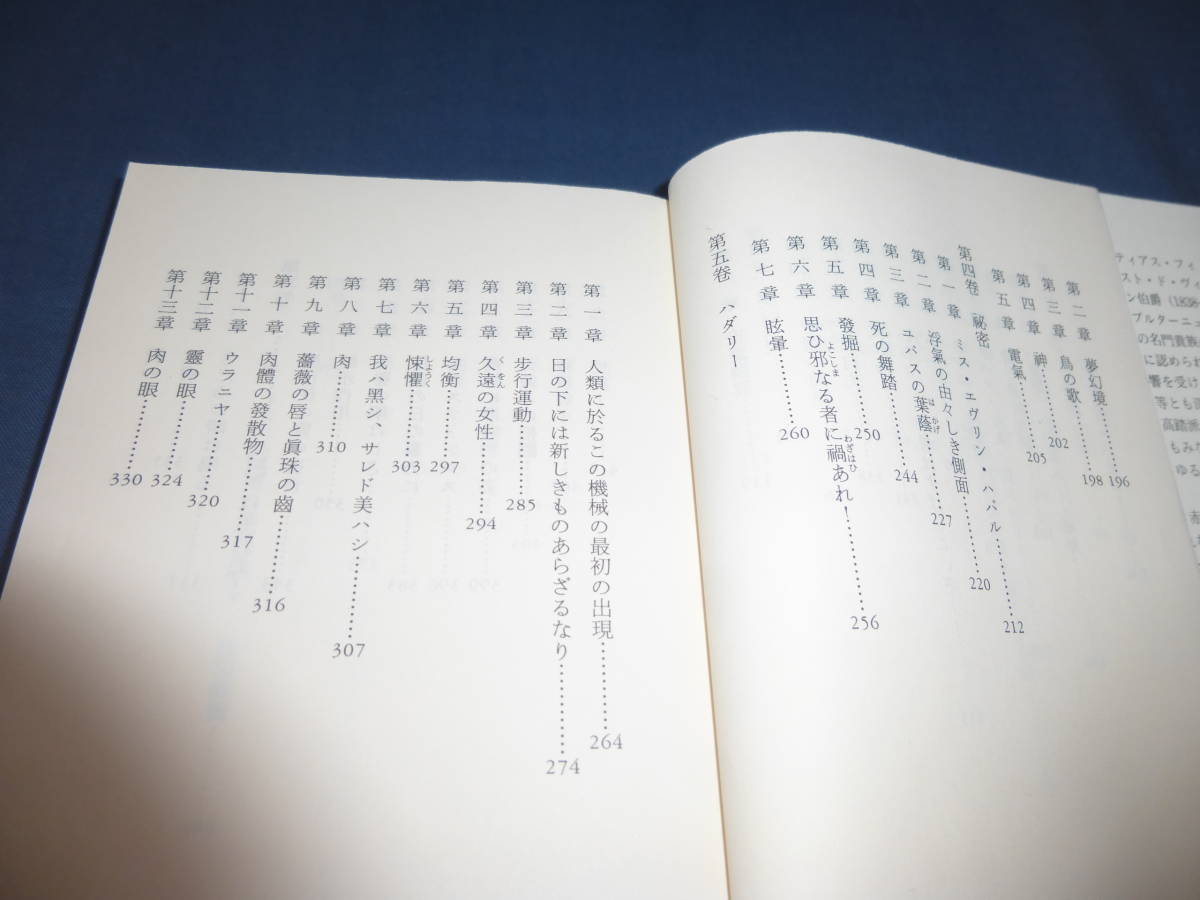 ティアス・フィ
スト・ド・ヴ
ン伯爵(1838-
ブルターニュ
の名門貴族
に認められ
響を受け
等とも
高踏派
もみな
ゆる
第二章 夢幻境……196
第三章 鳥の歌……198
第四章 神……202
第五章 電氣……205
第四巻 祕密
第一章 ミス・エヴリン・ハバル……212
第二章 浮氣の由々しき側面……220
第三章 ユパスの葉蔭……227
はかげ
第四章 死の舞踏……244
第五章 發掘……250
第六章 思ひ邪なる者に禍あれ!……256
よこしま わざはひ
第七章 眩暈……260
第五巻 ハダリー
第一章 人類に於るこの機械の最初の出現……264
第二章 日の下には新しきものあらざるなり……274
第三章 歩行運動……285
第四章 久遠の女性……294
くをん
第五章 均衡……297
第六章 悚懼……303
しようく
第七章 我ハ黑シ、サレド美ハシ……307
第八章 肉……310
第九章 薔薇の唇と眞珠の齒……316
第十章 肉體の發散物……317
第十一章 ウラニヤ……320
第十二章 靈の眼……324
第十三章 肉の眼……330